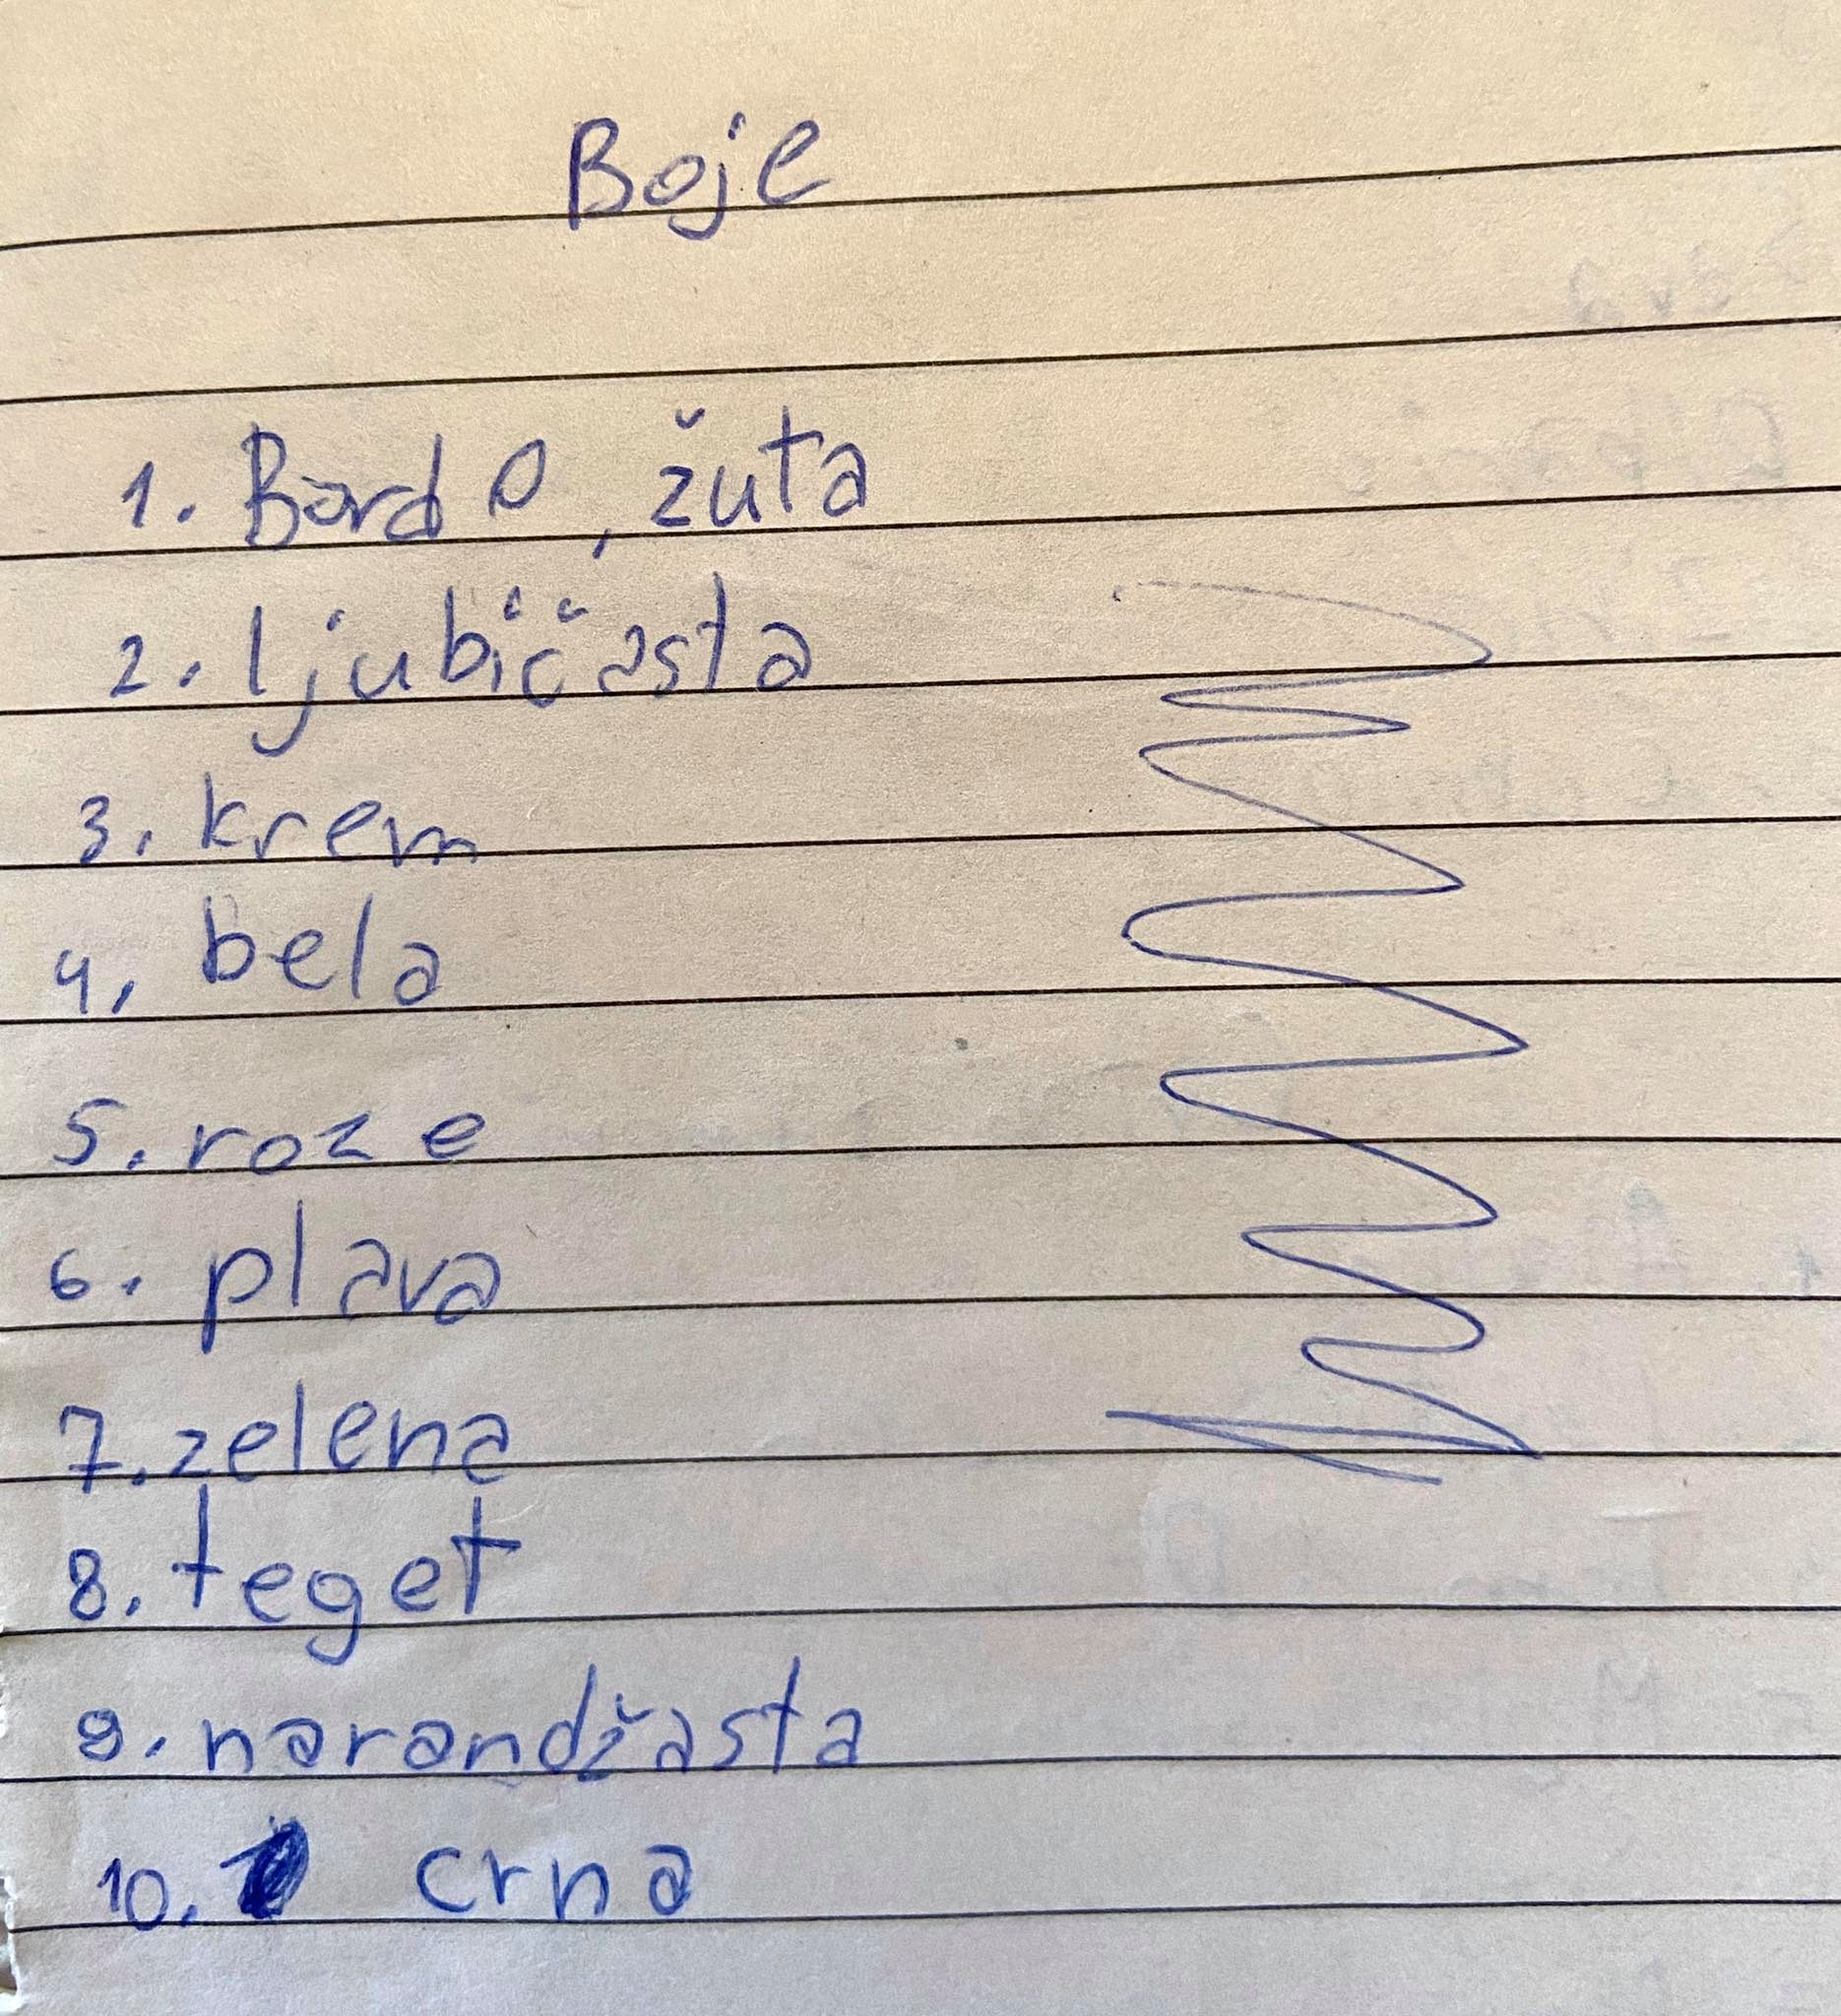 Boje
1. Bordo, žuta
2. ljubičasta
3. krem
4. bela
5. roze
6. plava
7. zelena
8. teget
9. narandžasta
10. crna